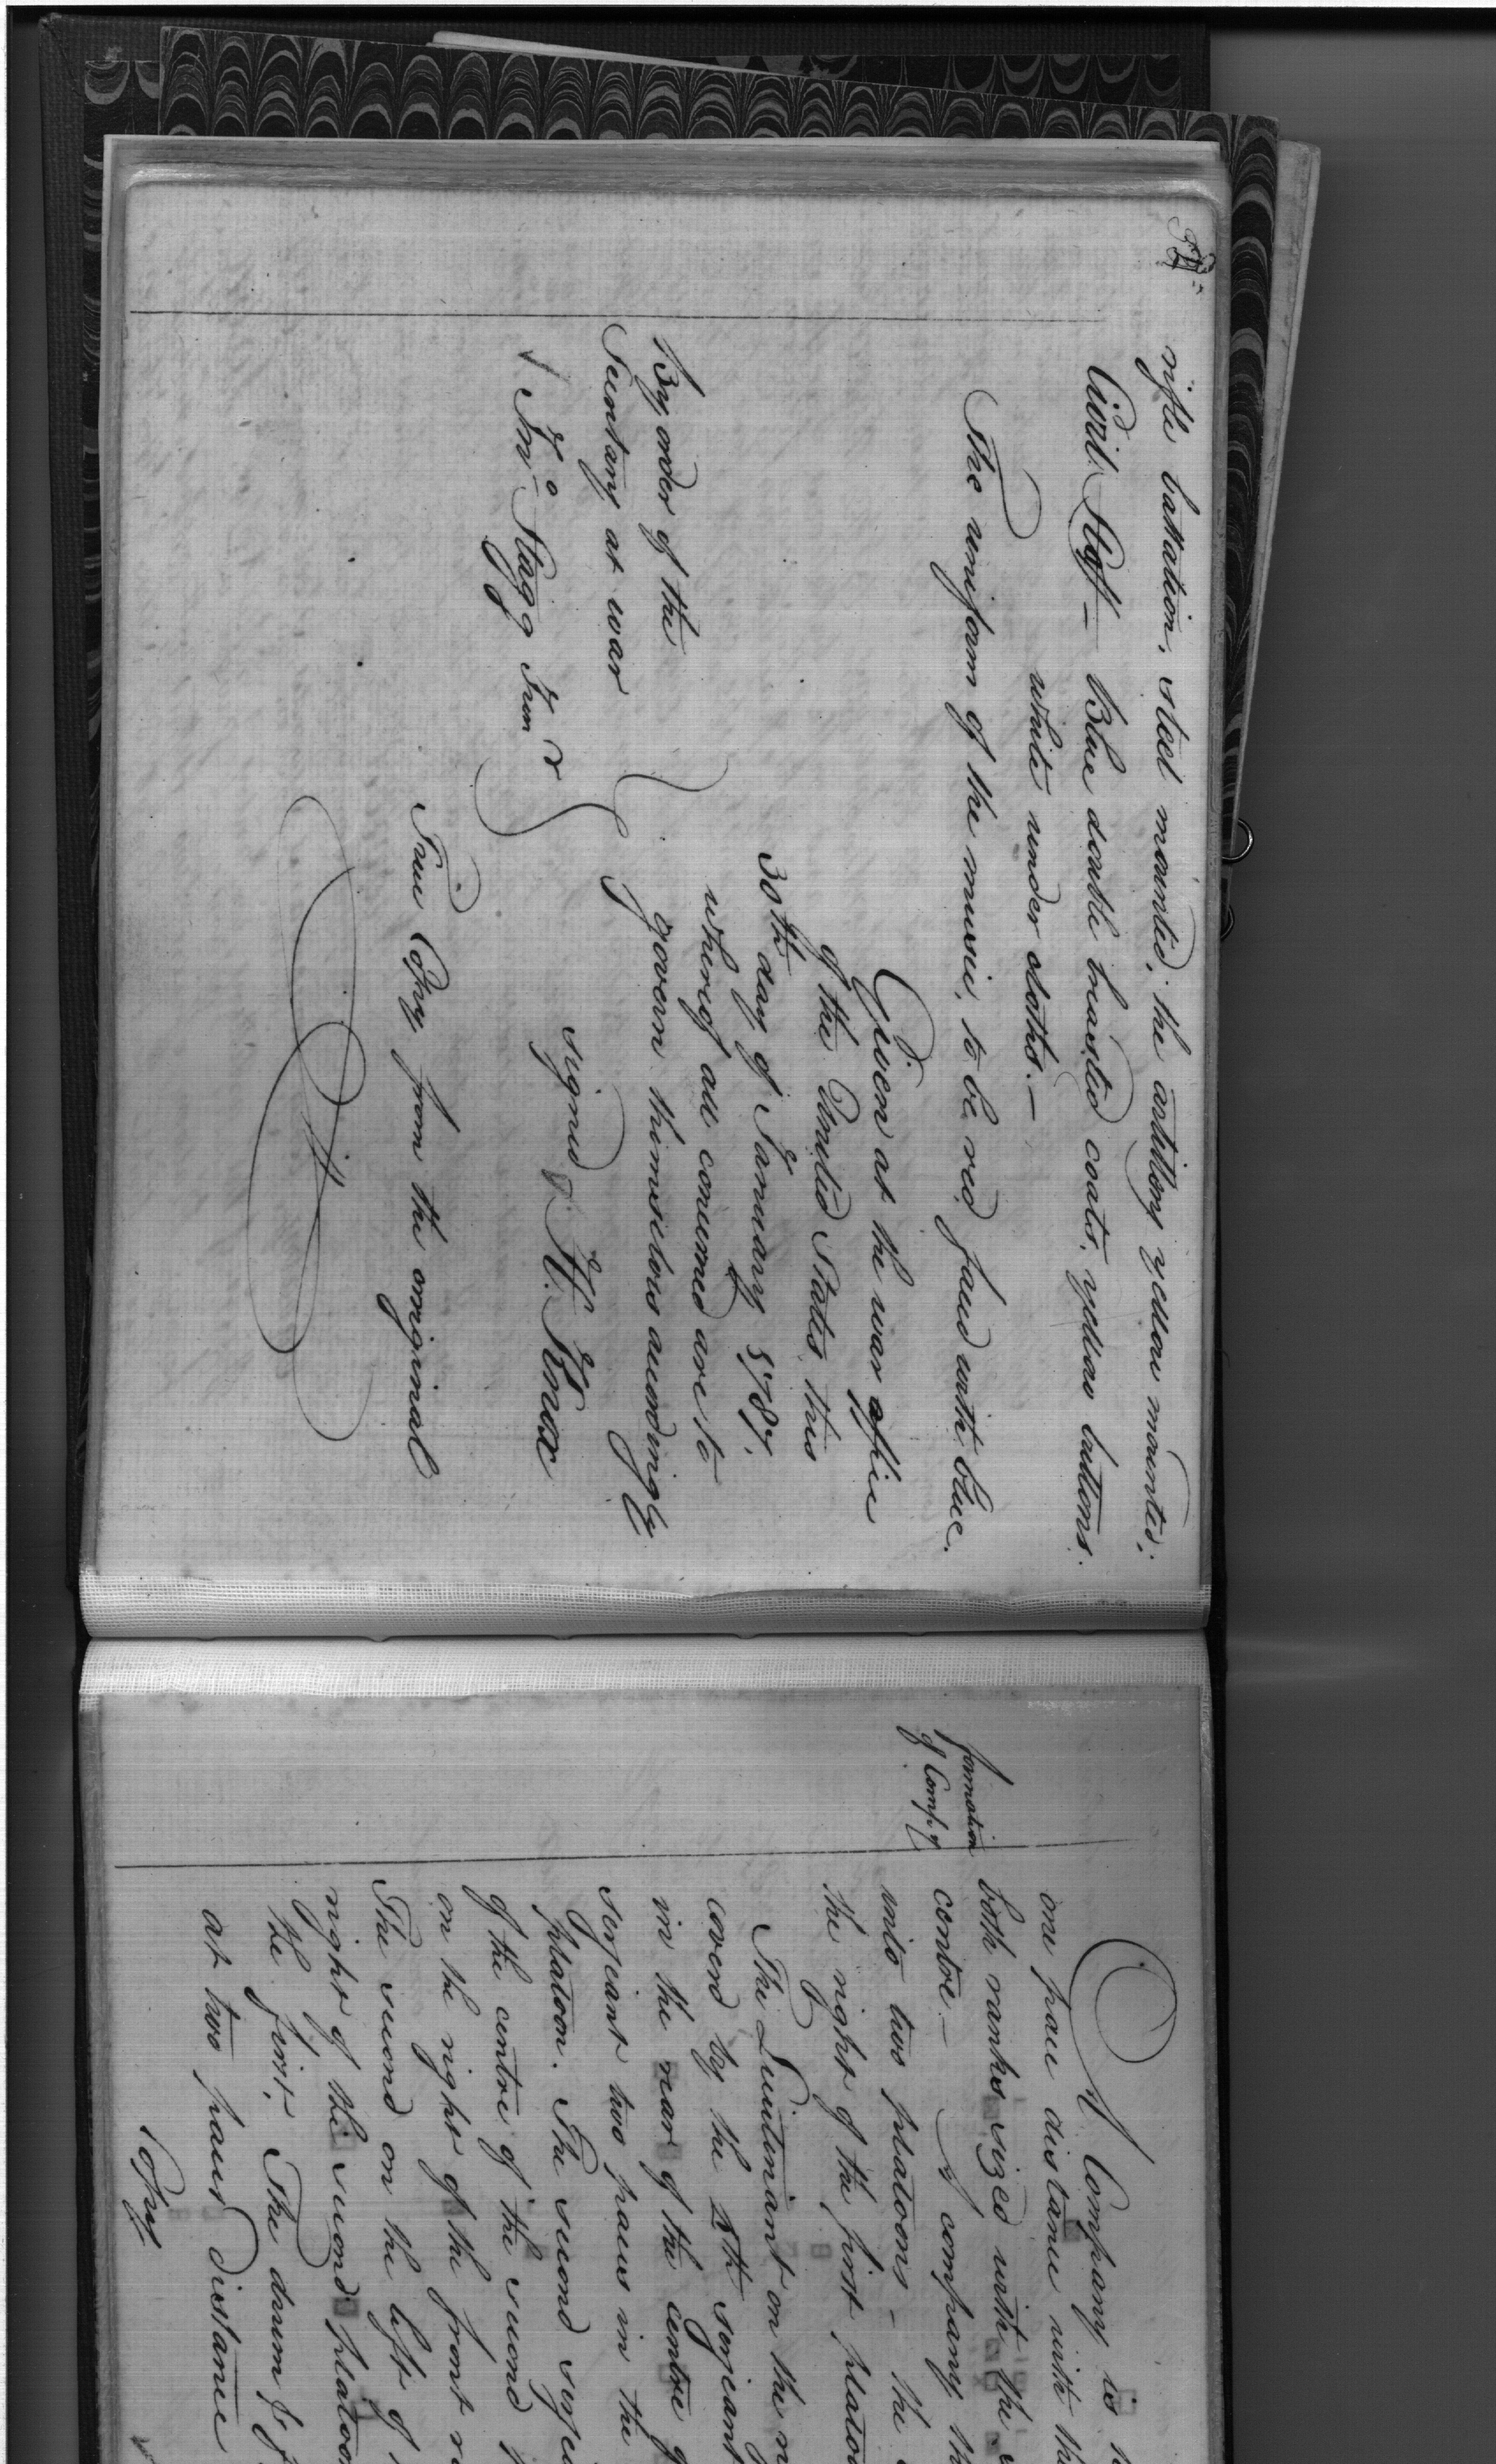 rifle battalion, steel mounted; the artillery yellow mounted;
Civil Staff — Blue double breasted coats, yellow buttons.
white under cloths. —
The uniform of the music, to be red faced with blue.
Given at the war office
of the United States this
30th day of January 1787.
whereof all concerned are to
govern themselves accordingly
signed H. Knox
By order of the
Secretary at war
Jno Stagg Junr
True Copy from the original
formation
of Compy
A Company is
one pace distance with the
both ranks sized with the
centre. — A company
into two platoons — the
the right of the first platoon
The Lieutenant on the
covered by the 5th serjeant
in the rear of the centre
serjeant two paces in the
platoon. The second
of the centre of the second
on the right of the front
The second on the left of
right of the second platoon
the first. The drum &
at two paces distance
Copy